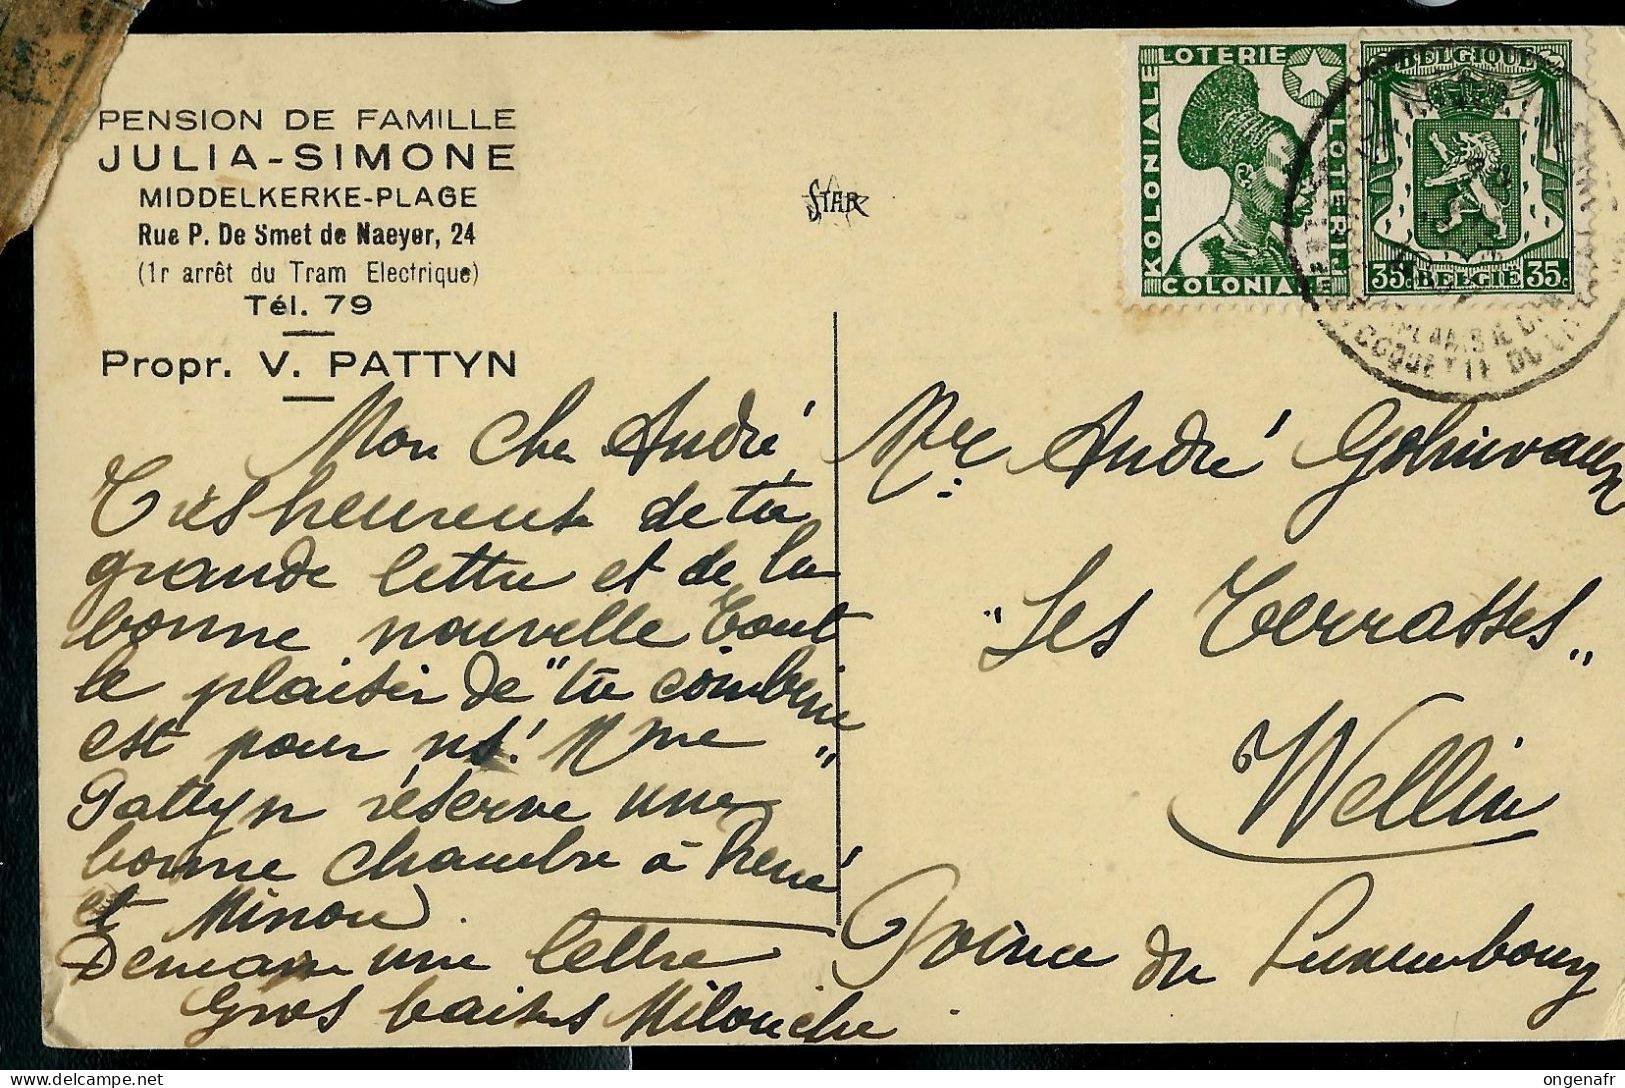 PENSION DE FAMILLE
JULIA-SIMONE
MIDDELKERKE-PLAGE
Rue P. De Smet de Naeyer, 24
(1r arrêt du Tram Electrique)
Tél. 79
Propr. V. PATTYN
STAR
LOTERIE
KOLONIALE
LOTERIJ
COLONIALE
BELGIQUE
35c BELGIE 35c
COQUETTE DU
Mon Cher André,
Très heureuse de ta
grande lettre et de la
bonne nouvelle Tout
le plaisir de "ta combine"
est pour ns! Mme
Pattyn réserve une
bonne chambre à René
et Minou.
Demain une lettre
Gros baisers Milouche
Mr André
"Les Terrasses"
Wellin
Province du Luxembourg
delcampe.net
ongenafr